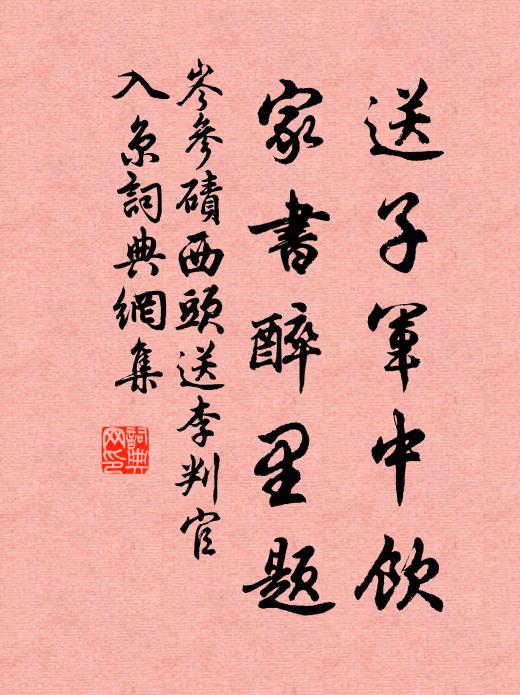 送子軍中飲
家書醉里題
岑參磧西頭送李判官
入京詞典網集
詞典
网印